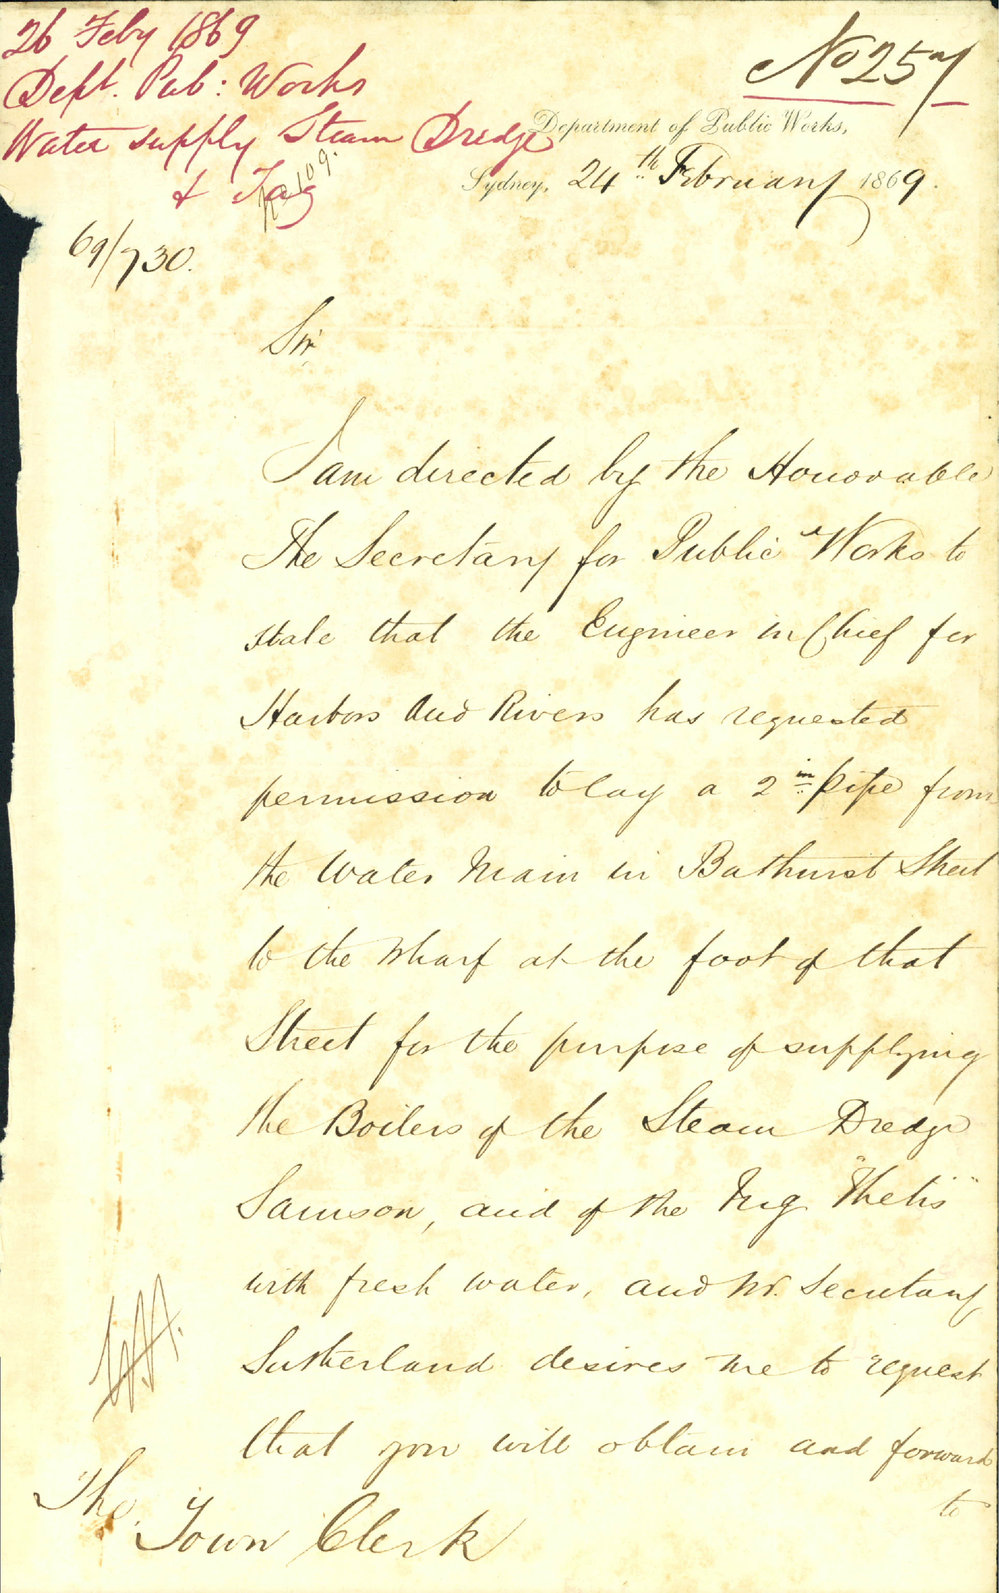 26 Feby 1869
Dept. Pub: Works
Water supply Steam Dredge
& Tug
No 257
Department of Public Works,
Sydney, 24th February 1869.
69/730.
Sir,
I am directed by the Honorable
The Secretary for Public Works to
state that the Engineer in Chief for
Harbors and Rivers has requested
permission to lay a 2 in pipe from
the Water Main in Bathurst Street
to the Wharf at the foot of that
Street for the purpose of supplying
the Boilers of the Steam Dredge
Samson, and of the Tug "Thetis"
with fresh water, and Mr. Secretary
Sutherland desires me to request
that you will obtain and forward
to
The
Town Clerk